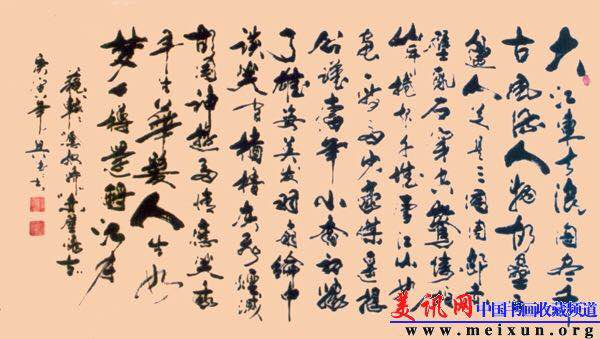 大江東去浪淘盡千
古風流人物故壘西
邊人道是三國周郎赤
壁亂石穿空驚濤拍
岸捲起千堆雪江山如
畫一時多少豪傑遙想
公瑾當年小喬初嫁
了雄姿英發羽扇綸巾
談笑間檣櫓灰飛煙滅
故國神遊多情應笑我
早生華髮人生如
夢一樽還酹江月
蘇軾念奴嬌赤壁懷古
庚寅年
美讯网中国书画收藏频道
www.meixun.org